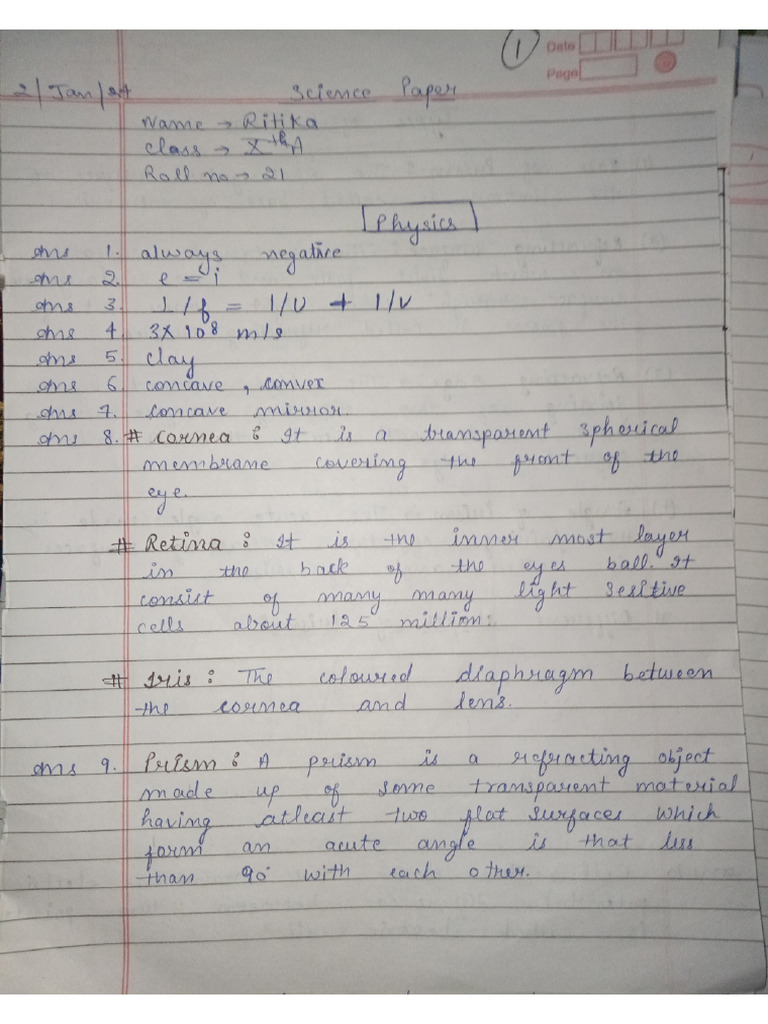 1 Date
Page
2/Jan/24 Science Paper
Name → Ritika
Class → Xth A
Roll no → 21
Physics
Ans 1. always negative
Ans 2. e = i
Ans 3. 1/f = 1/U + 1/V
Ans 4. 3×10⁸ m/s
Ans 5. clay
Ans 6 concave, convex
Ans 7. concave mirror.
Ans 8. # Cornea : It is a transparent spherical
membrane covering the front of the
eye.
# Retina : It is the inner most layer
in the back of the eyes ball. It
consist of many many light sesitive
cells about 125 million.
# Iris : The coloured diaphragm between
the cornea and lens.
Ans 9. Prism : A prism is a refracting object
made up of some transparent material
having atleast two flat surfaces which
form an acute angle is that less
than 90° with each other.